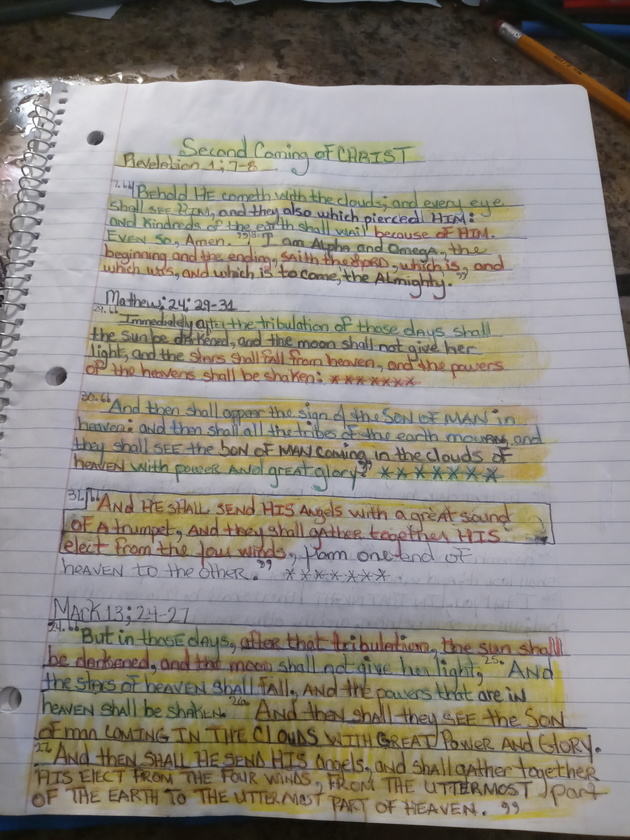 Second Coming of CHRIST
Revelation 1; 7-8
7. "Behold HE cometh with the clouds; and every eye
shall SEE HIM, and they also which pierced HIM:
and kindreds of the earth shall wail because of HIM.
EVEN SO, Amen. " 8. " I am Alpha and Omega, the
beginning and the ending, saith the LORD, which is, and
which was, and which is to come, the Almighty."
Mathew; 24; 29-31
29. "Immediately after the tribulation of those days shall
the sun be darkened, and the moon shall not give her
light, and the stars shall fall from heaven, and the powers
of the heavens shall be shaken: *******
30. "And then shall appear the sign of the SON OF MAN in
heaven: and then shall all the tribes of the earth mourn, and
they shall SEE the SON OF MAN COMING in the clouds of
HEAVEN with power AND great glory." *******
31. "AND HE SHALL SEND HIS Angels with a great sound
OF A trumpet, AND they shall gather together HIS
elect from the four winds, from one end of
HEAVEN TO the other." *******
MACK 13; 24-27
24. "But in those days, after that tribulation, the sun shall
be darkened, and the moon shall not give her light, 25. AND
the stars of HEAVEN SHALL FALL, AND the powers that are in
HEAVEN shall be shaken. 26. And then shall they SEE the SON
of man COMING IN THE CLOUDS WITH GREAT POWER AND GLORY.
27 AND then SHALL HE SEND HIS angels, and shall gather together
HIS ELECT FROM THE FOUR WINDS, FROM THE UTTERMOST part
OF THE EARTH TO THE UTTERMOST PART OF HEAVEN. "